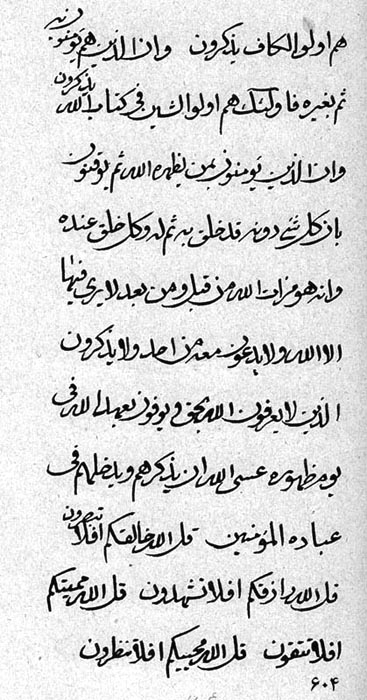 هم اولو الكاف يذكرون وان الذين هم يوقنون به
ثم بغيره فاولئك هم اولو الشين في كتاب الله يذكرون
وان الذين يومنون بمن يظهره الله ثم يوقنون
بان كل شئ دونه قد خلق به ثم له وكل خلق عنده
وانه هو مرات الله من قبل ومن بعد لا يري فيها
الا الله ولا يدعون معه من احد ولا يذكرون
الذين لا يعرفون الله بحق ويوفون بعهد الله في
يوم ظهوره عسي الله ان يذكرهم ويدخلهم في
عباده المؤمنين قل الله خالقكم افلا تبصرون
قل الله رازقكم افلا تشهدون قل الله مميتكم
افلا تتقون قل الله محييكم افلا تنظرون
۶۰۴